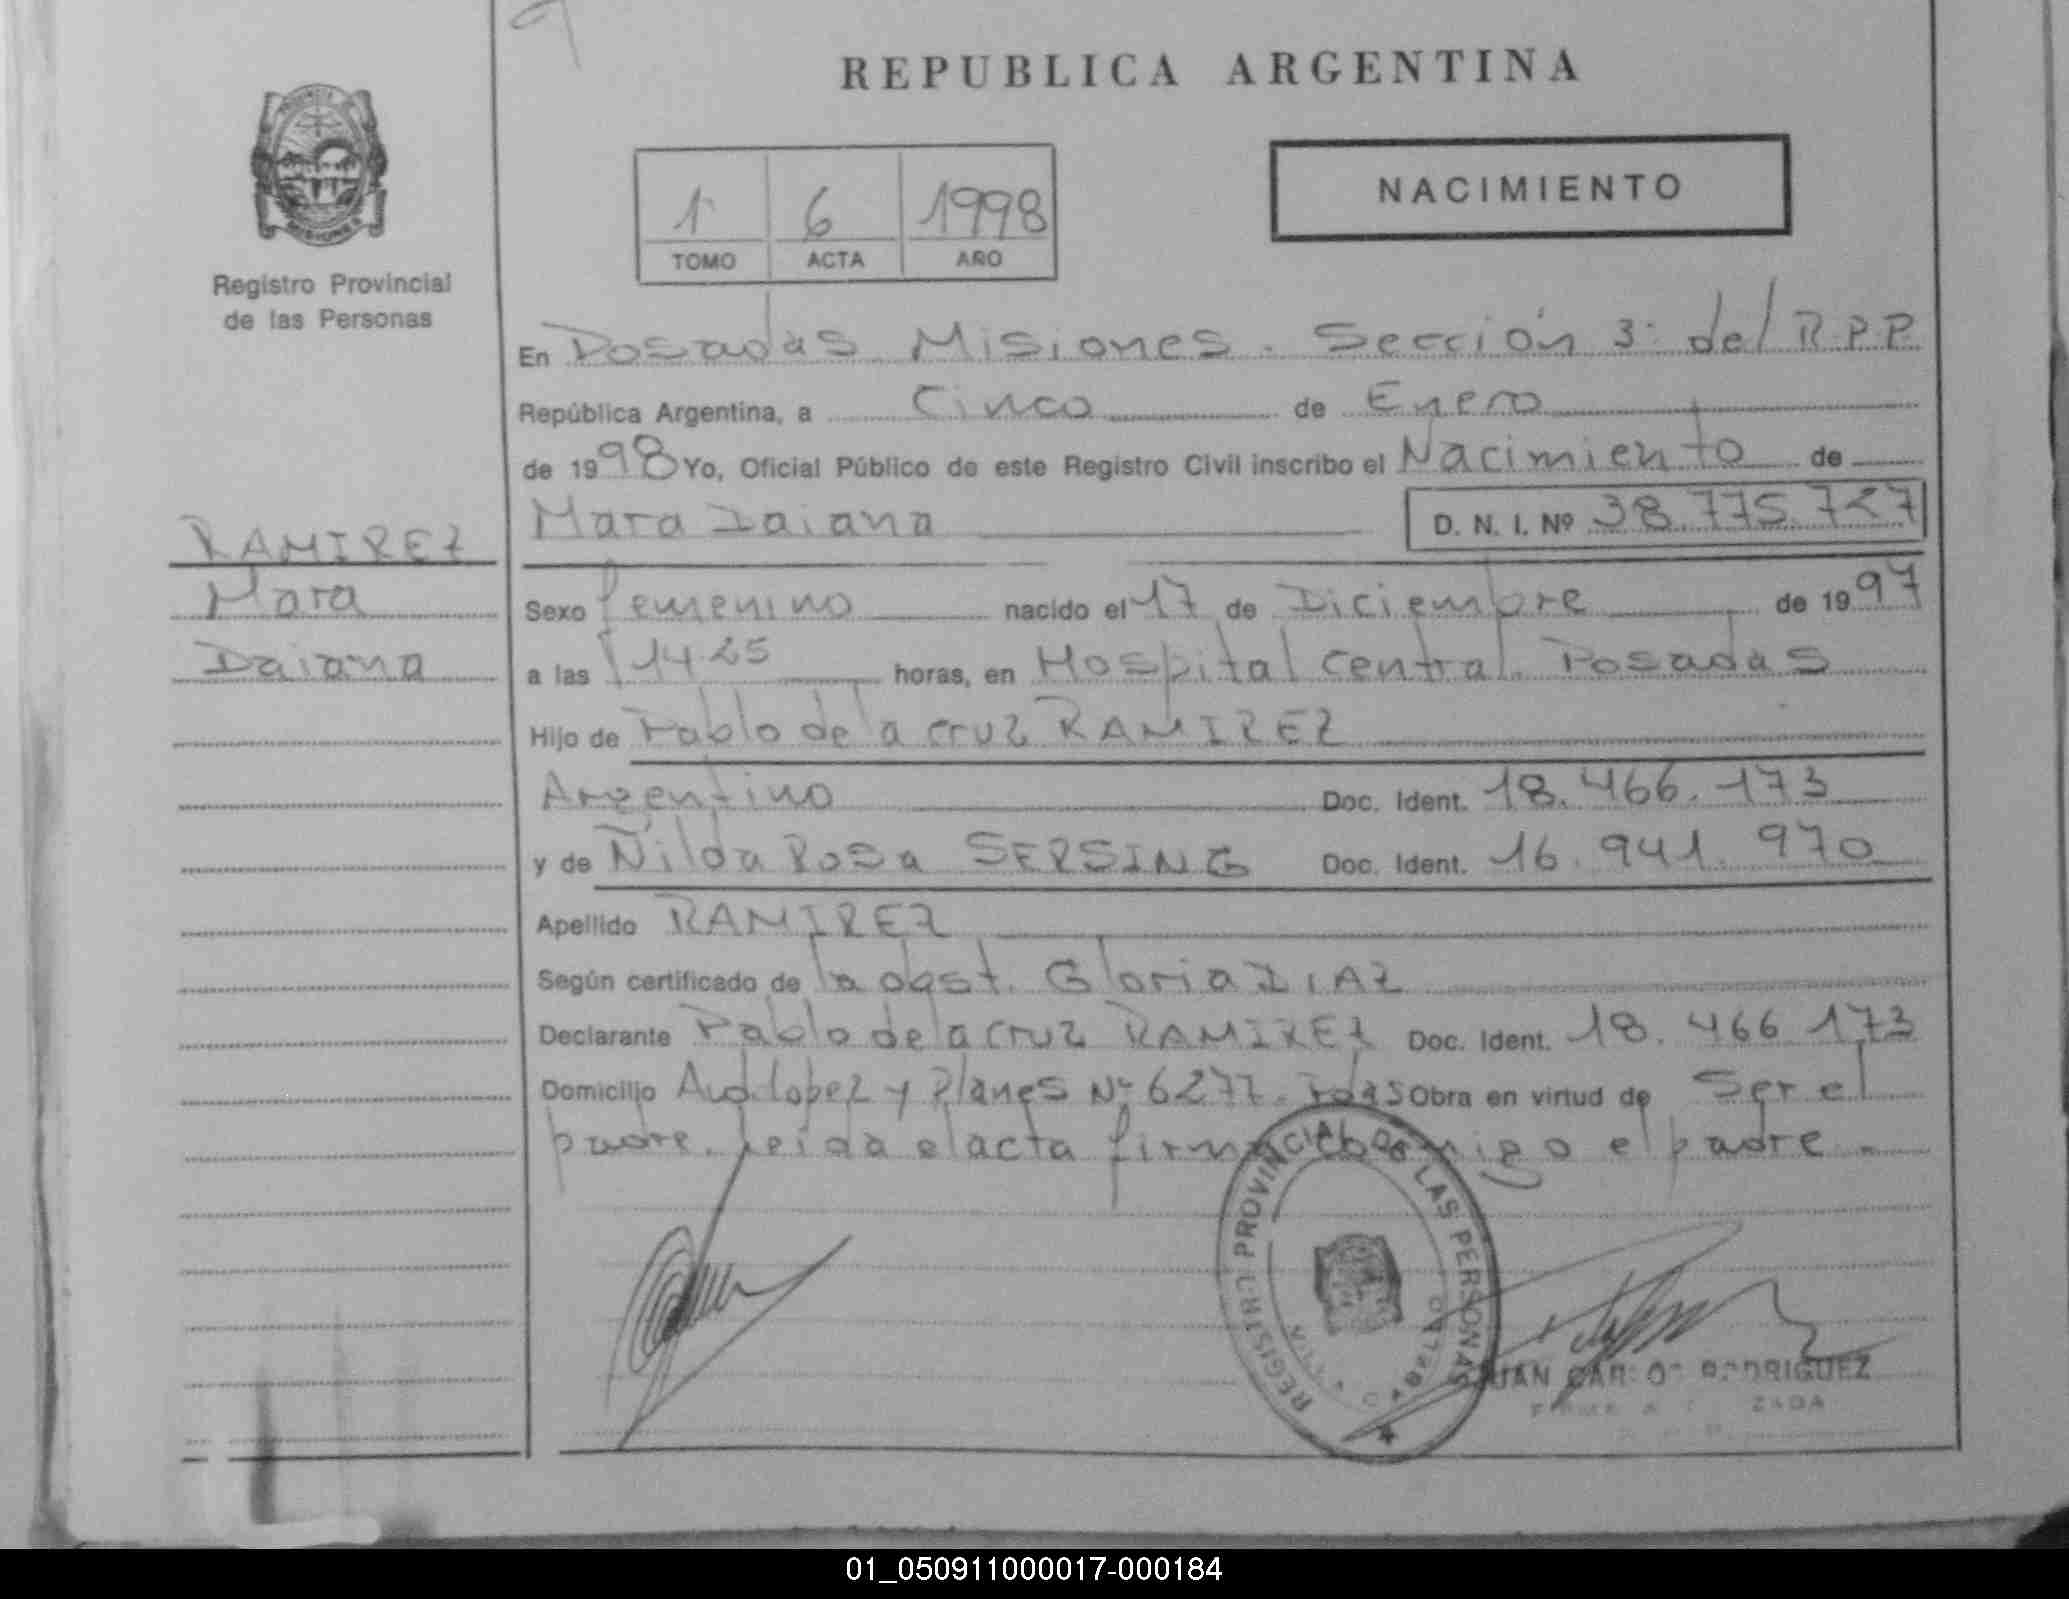 REPUBLICA ARGENTINA
NACIMIENTO
1 6 1998
TOMO ACTA AÑO
Registro Provincial
de las Personas
En Posadas Misiones. Sección 3ª del R.P.P.
República Argentina, a Cinco de Enero
de 1998 Yo, Oficial Público de este Registro Civil inscribo el Nacimiento de
Mara Daiana D. N. I. Nº 38.775.727
RAMIREZ
Mara
Daiana
Sexo femenino nacido el 17 de Diciembre de 1997
a las 14.25 horas, en Hospital Central. Posadas
Hijo de Pablo de la cruz RAMIREZ
Argentino Doc. Ident. 18.466.173
y de Nilda Rosa SERSING Doc. Ident. 16.941.970
Apellido RAMIREZ
Según certificado de la obst. Gloria DIAZ
Declarante Pablo de la cruz RAMIREZ Doc. Ident. 18.466.173
Domicilio Avd. Lopez y Planes Nº 6277. Pdas Obra en virtud de Ser el
padre. Leida el acta firma conmigo el padre.
REGISTRO PROVINCIAL DE LAS PERSONAS
JUAN CARLOS RODRIGUEZ
01_050911000017-000184